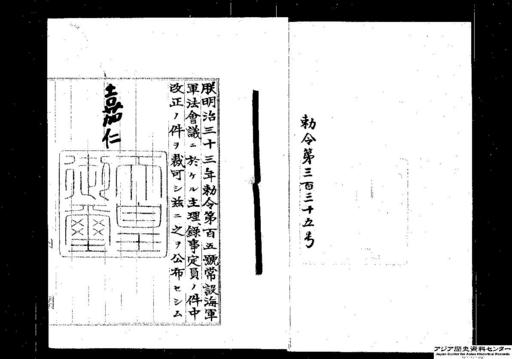 勅令第三百三十五号
朕明治三十三年勅令第百五號常設海軍
軍法會議ニ於ケル主理、錄事定員ノ件中
改正ノ件ヲ裁可シ茲ニ之ヲ公布セシム
嘉仁
天皇
御璽
アジア歴史資料センター
Japan Center for Asian Historical Records